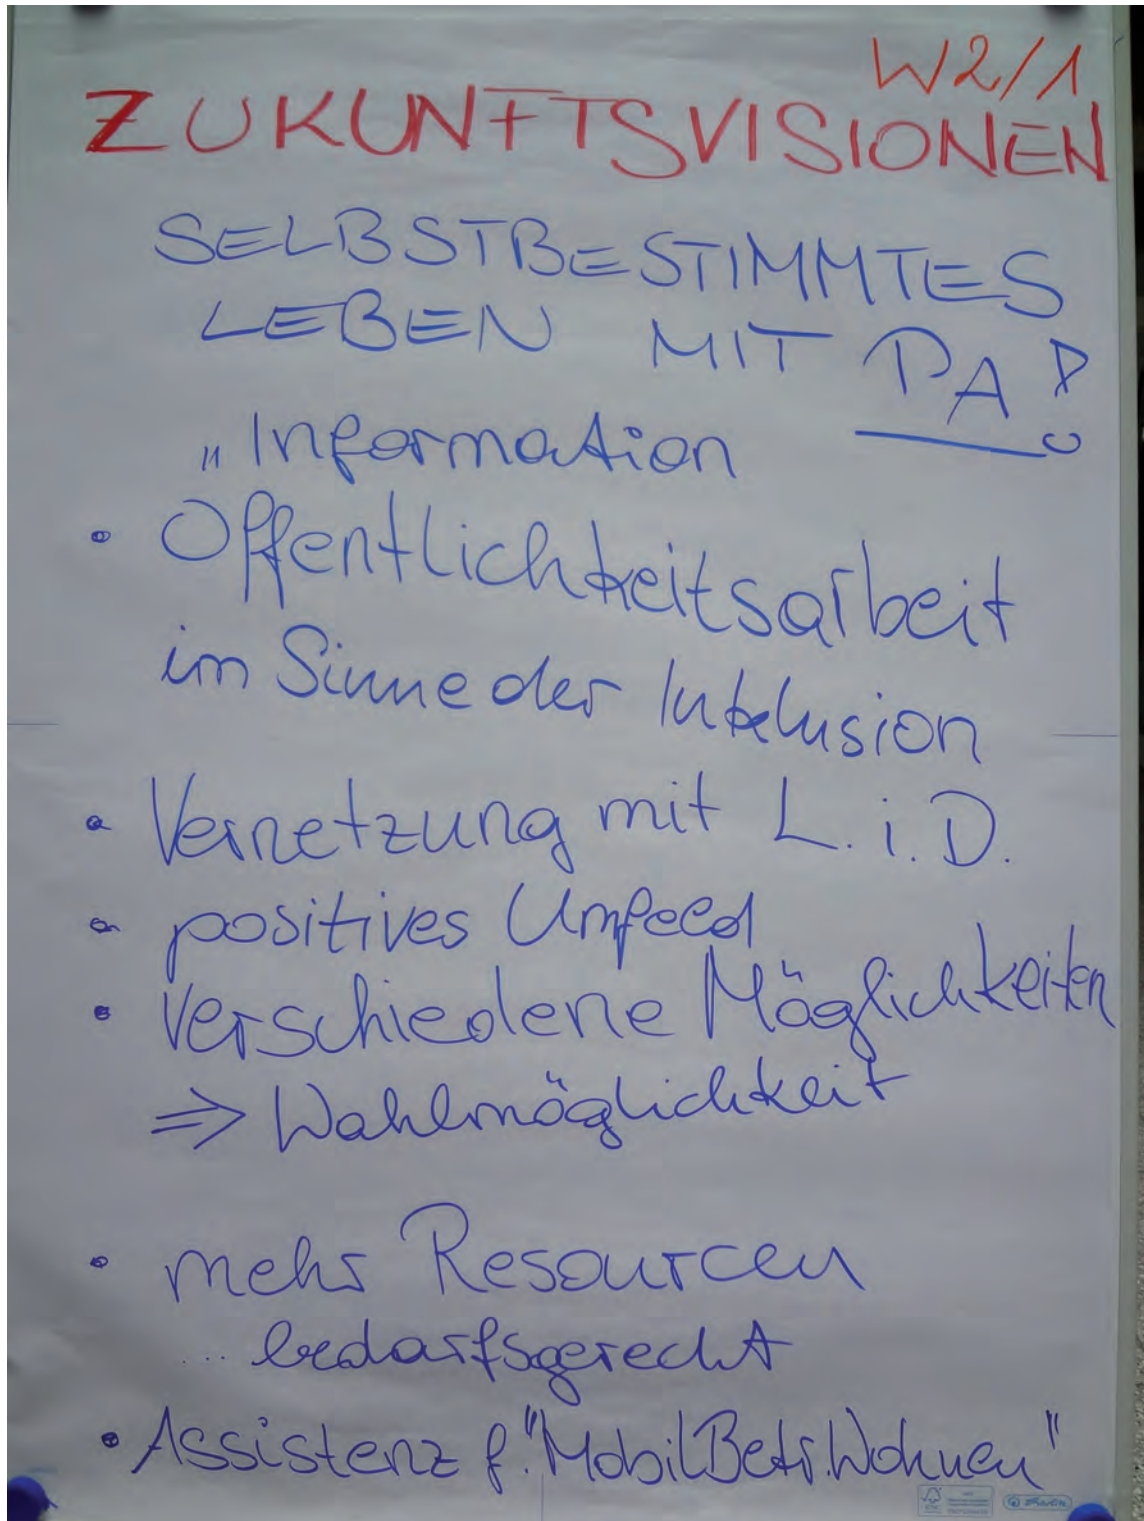 W2/1
ZUKUNFTSVISIONEN
SELBSTBESTIMMTES
LEBEN MIT PA!
„Information
• Offentlichkeitsarbeit
im Sinne der Inklusion
• Vernetzung mit L.i.D.
• positives Umfeld
• Verschiedene Möglichkeiten
⇒ Wahlmöglichkeit
• mehr Resourcen
... bedarfsgerecht
• Assistenz f. "Mobil Betr. Wohnen"